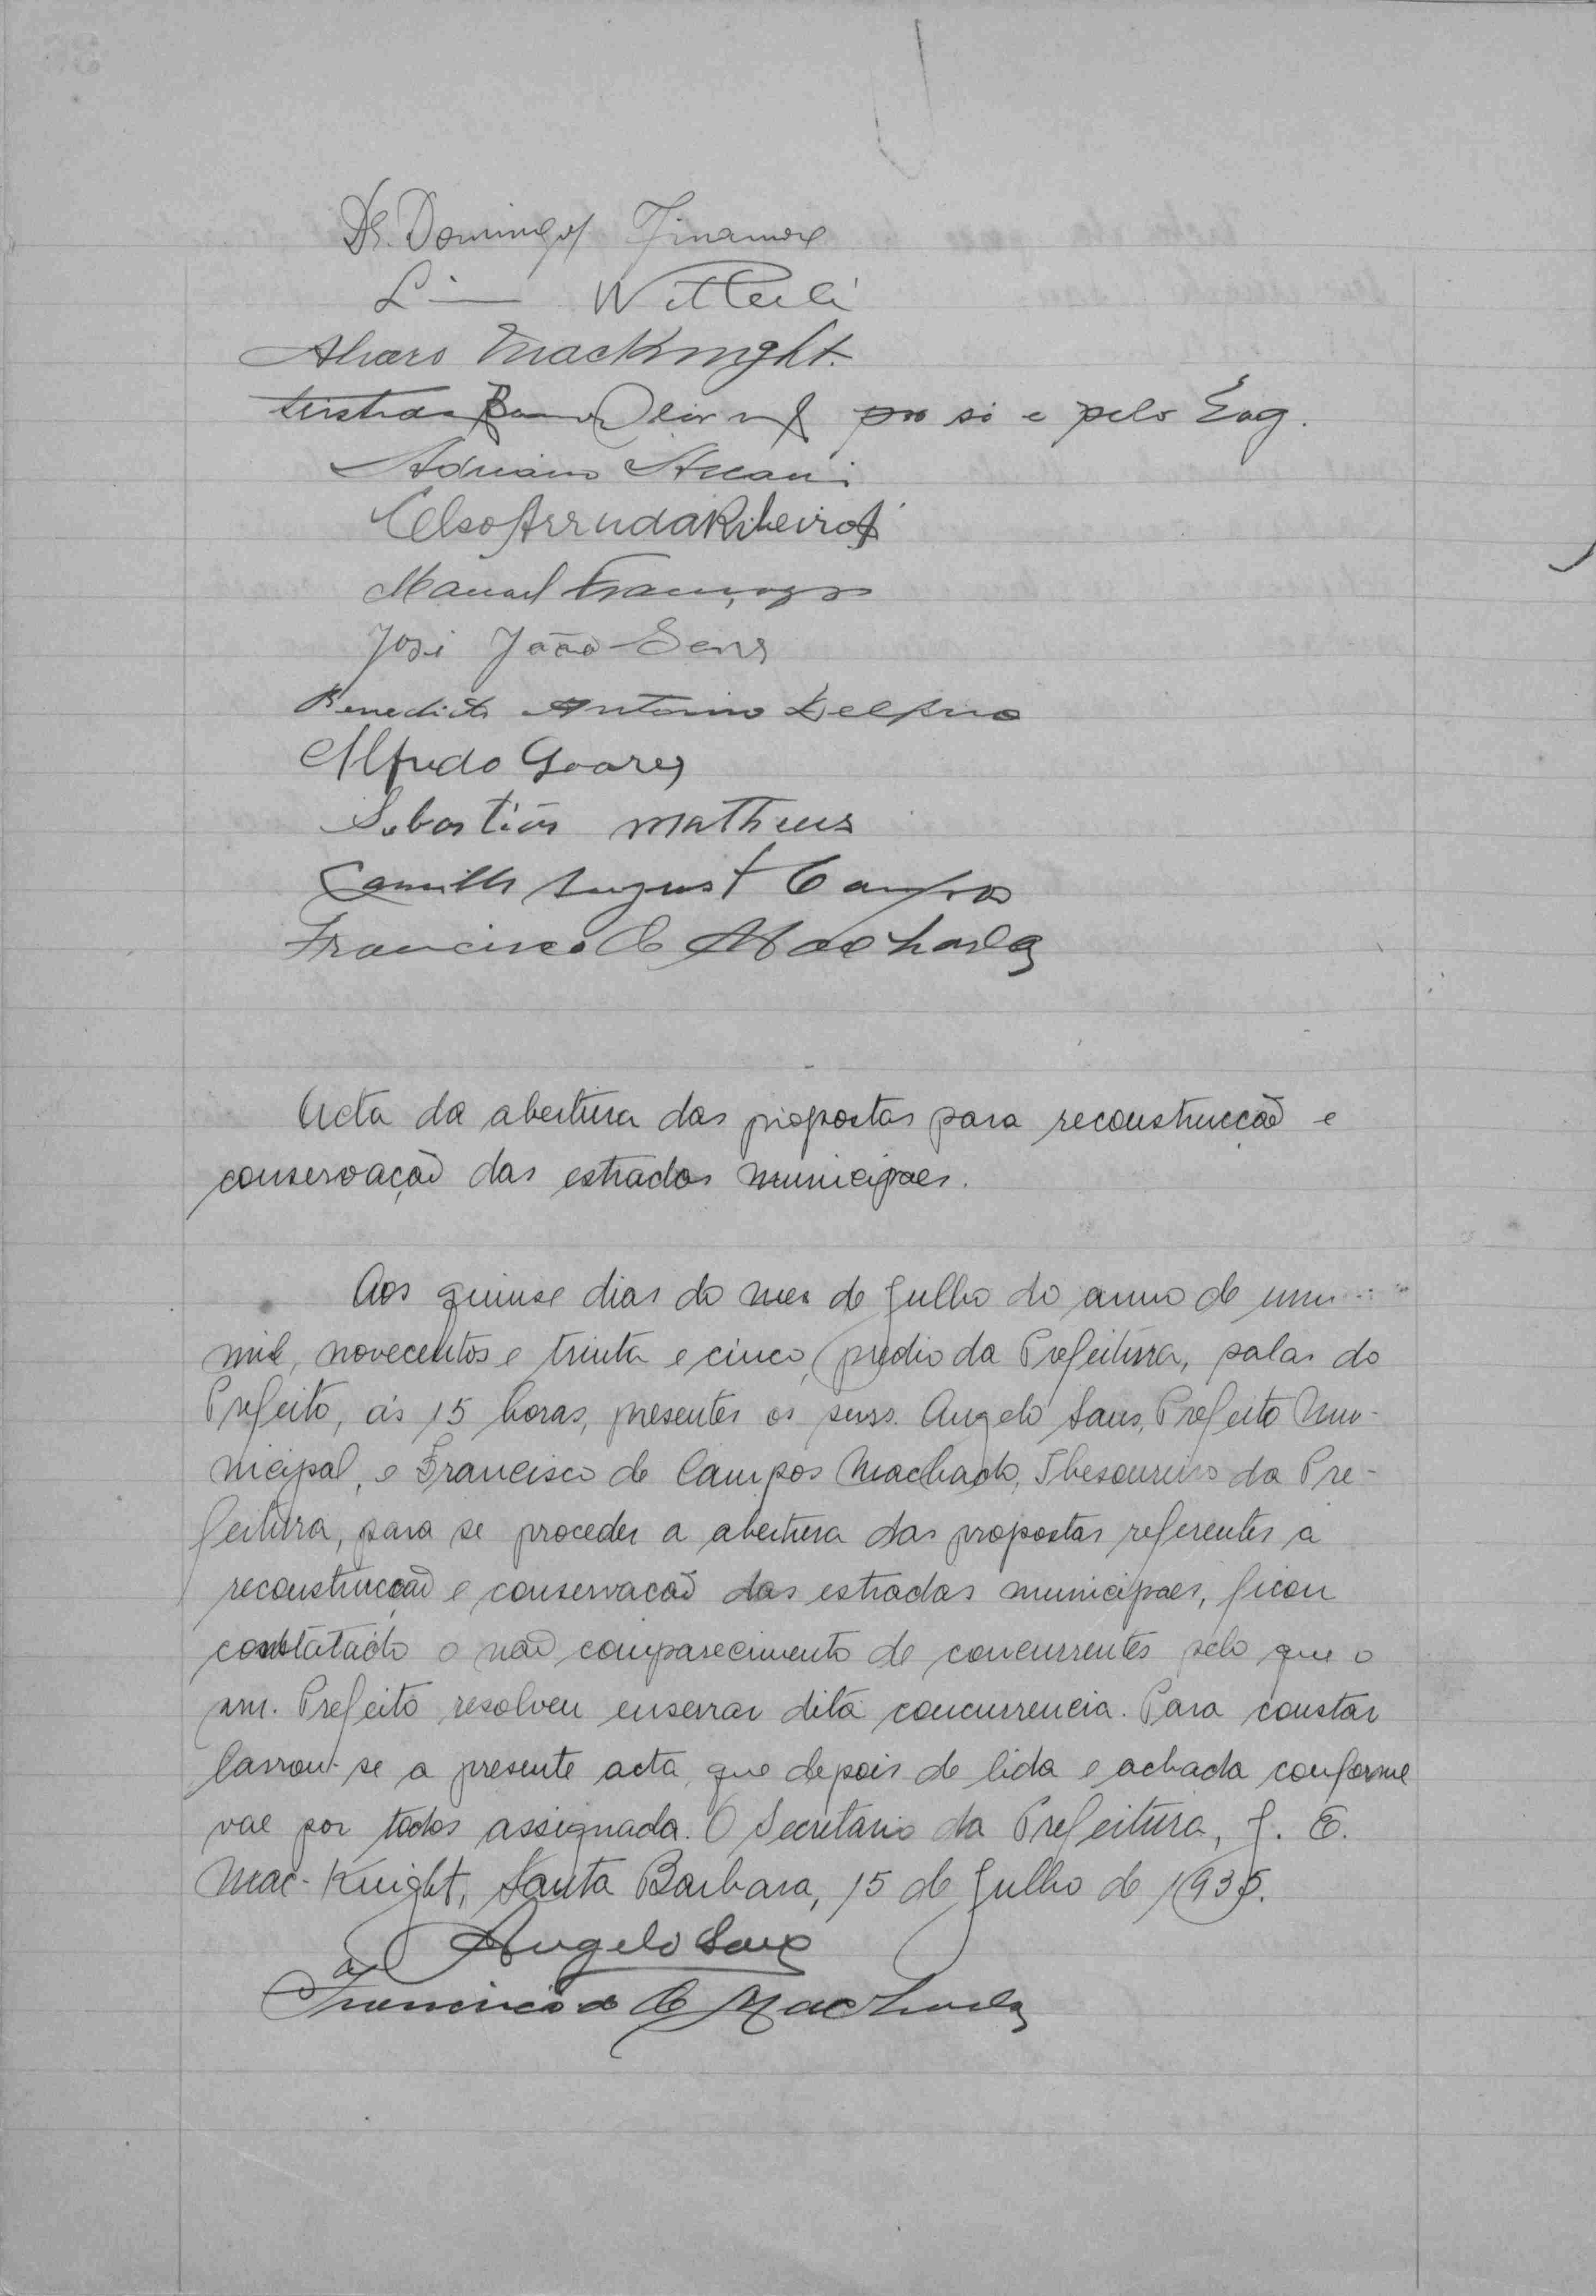 Dr. Domingos Finamore
Alvaro MacKnight.
por si e pelo Eng.
Adriano
Celso Arruda Ribeiro
Manuel
José João Sans
Benedicto Antonio Delfino
Alfredo Soares
Sebastião Matheus
Camillo August Campos
Francisco C Machado
Acta da abertura das propostas para reconstrucção e
conservação das estradas municipaes.
Aos quinse dias do mes de Julho do anno de um
mil, novecentos e trinta e cinco, predio da Prefeitura, salas do
Prefeito, ás 15 horas, presentes os snrs. Angelo Sans, Prefeito Mu-
nicipal, e Francisco de Campos Machado, Thesoureiro da Pre-
feitura, para se proceder a abertura das propostas referentes a
reconstrucção e conservacão das estradas municipaes, ficou
constatado o não comparecimento de concurrentes pelo que o
snr. Prefeito resolveu enserrar dita concurrencia. Para constar
lavrou-se a presente acta que depois de lida e achada conforme
vae por todos assignada. O Secretario da Prefeitura, J. E.
Mac-Knight, Santa Barbara, 15 de Julho de 1935.
Angelo Sans
Francisco de C Machado